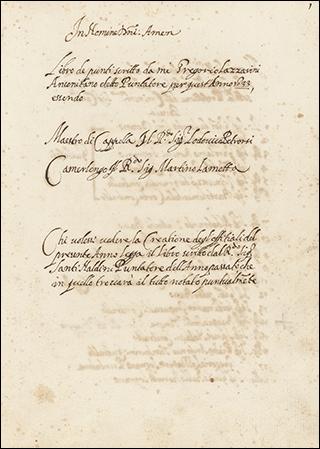 1
In Nomine Dñi: Amen
Libro de punti scritto da me Gregorio Lazzarini
Anconitano eletto Puntatore per quest'Anno
essendo
Maestro di Cappella Il R.do Sig.r Lodovico
Camerlengo il R.do Sig. Martino Lamotta
Chi volesse vedere la Creatione degl'offitiali del
presente Anno legga il libro del R.do Sig.r
Santi Naldini Puntatore dell'Anno passato che
in quello troverà il tutto notato puntualmẽte